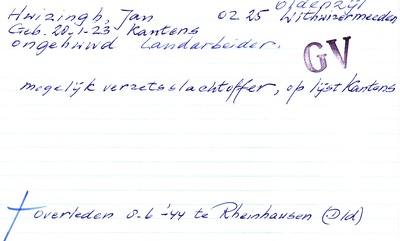 Huizingh, Jan 02 25 Uithuizermeeden
Geb. 20-1-23 Kantens
ongehuwd Landarbeider.
GV
mogelijk verzetsslachtoffer, op lijst Kantens
overleden 8-6-'44 te Rheinhausen (Dld)